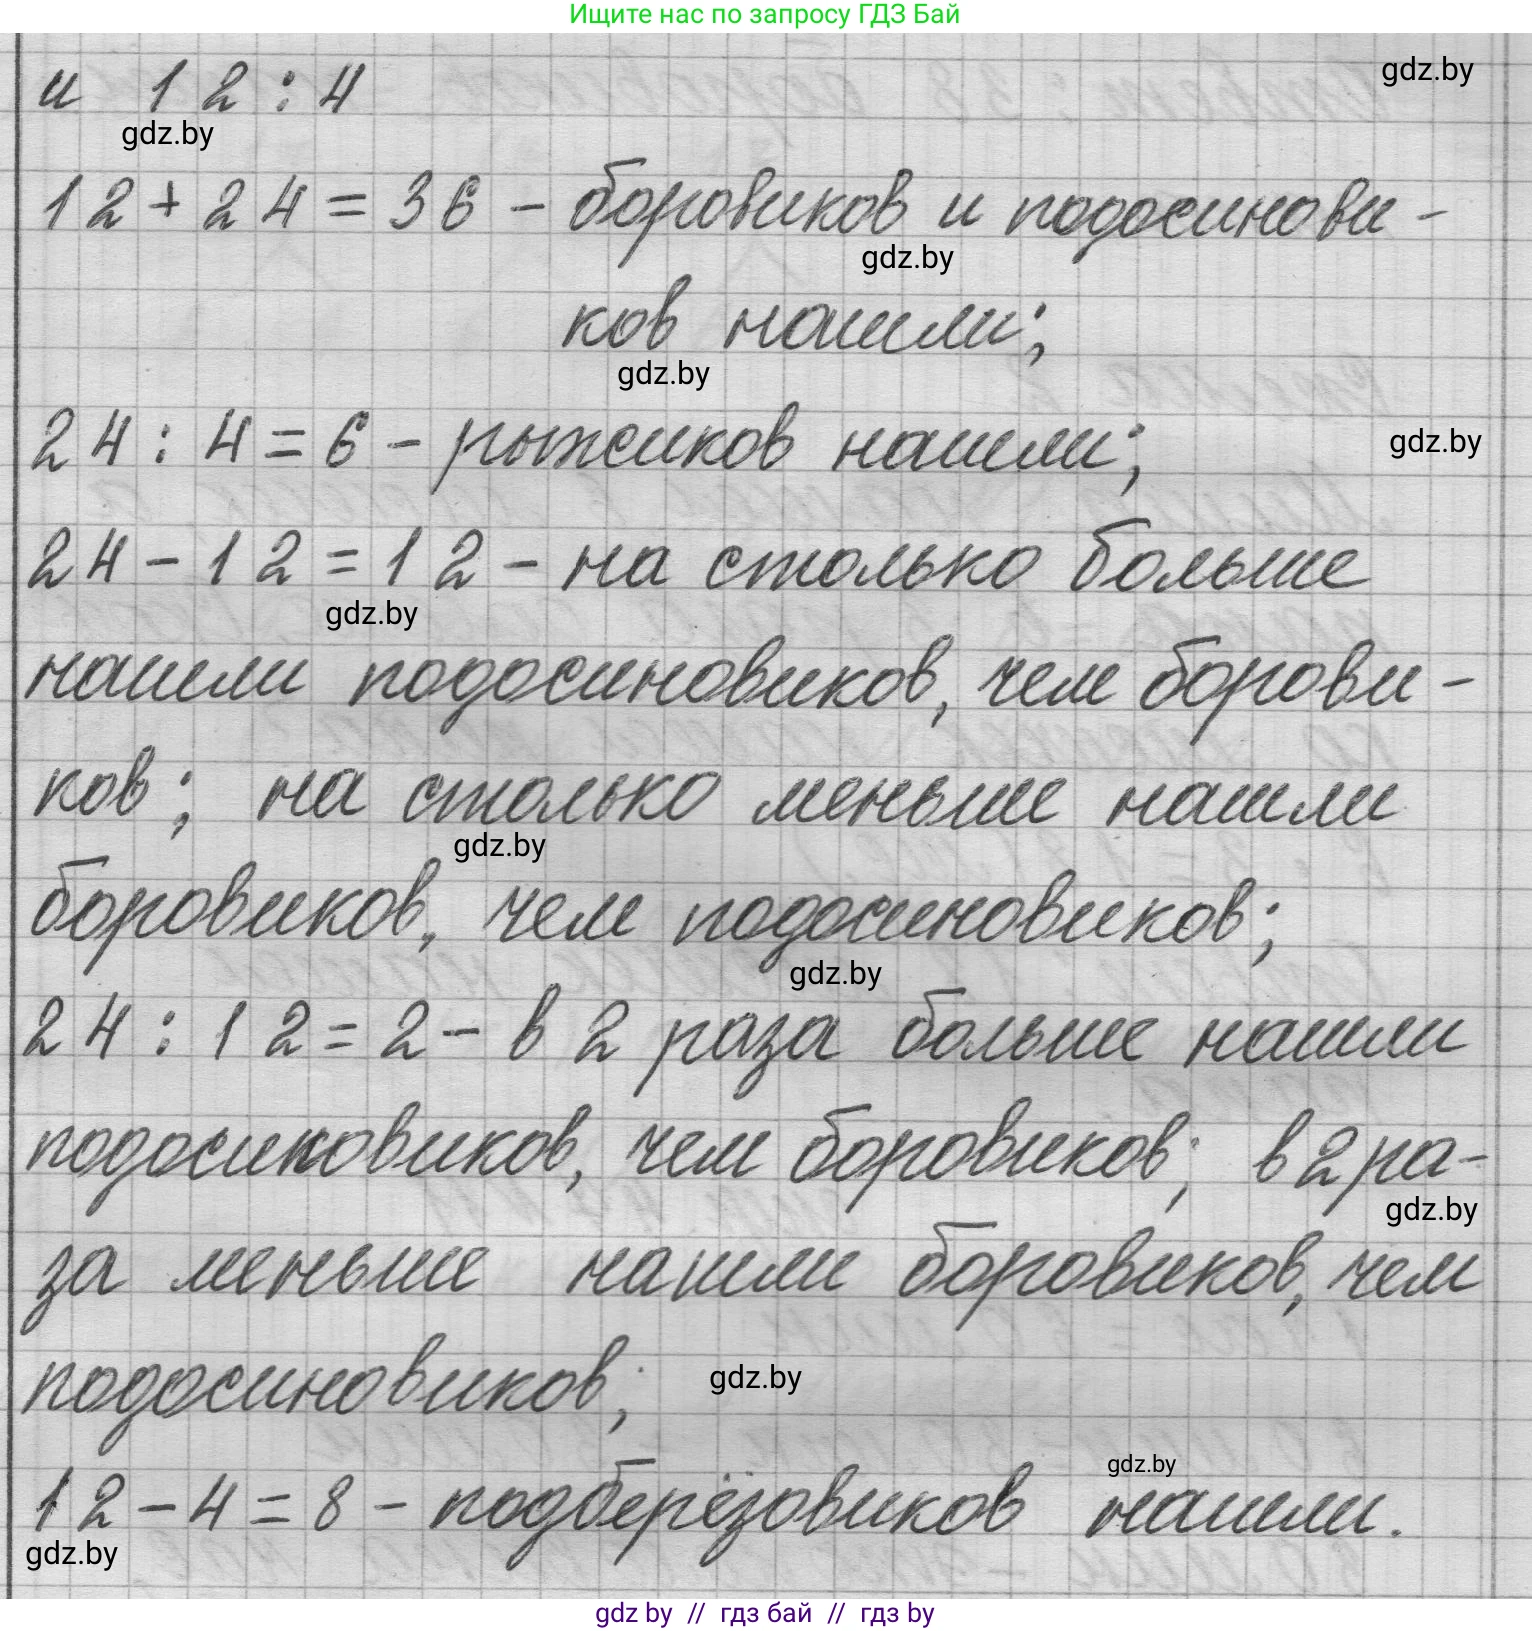 Ищите нас по запросу ГДЗ Бай
и 12:4
gdz.by
gdz.by
12+24=36 – боровиков и подосинови-
gdz.by
ков нашли;
gdz.by
24:4=6 – рыжиков нашли;
gdz.by
24-12=12 – на столько больше
gdz.by
нашли подосиновиков, чем борови-
ков; на столько меньше нашли
gdz.by
боровиков, чем подосиновиков;
gdz.by
24:12=2 – в 2 раза больше нашли
подосиновиков, чем боровиков; в 2 ра-
gdz.by
за меньше нашли боровиков, чем
подосиновиков;
gdz.by
gdz.by
12-4=8 – подберёзовиков нашли.
gdz.by
gdz by // гдз бай // гдз by